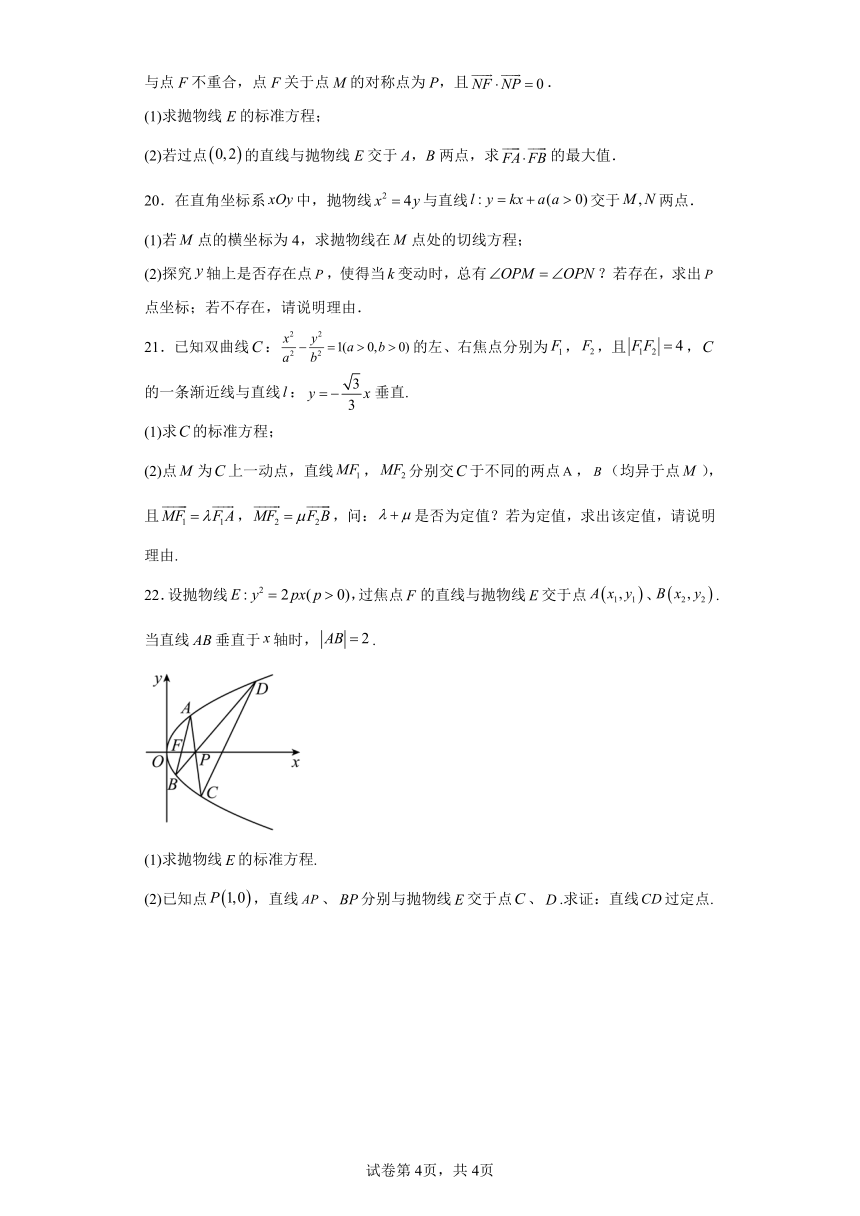 与点 F 不重合，点 F 关于点 M 的对称点为 P，且 $\overrightarrow{NF}\cdot\overrightarrow{NP}=0$．
(1)求抛物线 E 的标准方程；
(2)若过点$(0,2)$的直线与抛物线 E 交于 A，B 两点，求$\overrightarrow{FA}\cdot\overrightarrow{FB}$的最大值．
20．在直角坐标系$xOy$中，抛物线$x^2=4y$与直线$l:y=kx+a(a>0)$交于$M,N$两点．
(1)若$M$点的横坐标为 4，求抛物线在$M$点处的切线方程；
(2)探究$y$轴上是否存在点$P$，使得当$k$变动时，总有$\angle OPM=\angle OPN$？若存在，求出$P$
点坐标；若不存在，请说明理由．
21．已知双曲线$C$：$\frac{x^2}{a^2}-\frac{y^2}{b^2}=1(a>0,b>0)$的左、右焦点分别为$F_1$，$F_2$，且$|F_1F_2|=4$，$C$
的一条渐近线与直线$l$：$y=-\frac{\sqrt{3}}{3}x$垂直.
(1)求$C$的标准方程；
(2)点$M$为$C$上一动点，直线$MF_1$，$MF_2$分别交$C$于不同的两点A，$B$（均异于点$M$），
且$\overrightarrow{MF_1}=\lambda\overrightarrow{F_1A}$，$\overrightarrow{MF_2}=\mu\overrightarrow{F_2B}$，问：$\lambda+\mu$是否为定值？若为定值，求出该定值，请说明
理由.
22．设抛物线$E:y^2=2px(p>0)$，过焦点$F$的直线与抛物线$E$交于点$A(x_1,y_1)$、$B(x_2,y_2)$．
当直线$AB$垂直于$x$轴时，$|AB|=2$．
y
D
A
F
O
P
x
B
C
(1)求抛物线$E$的标准方程.
(2)已知点$P(1,0)$，直线$AP$、$BP$分别与抛物线$E$交于点$C$、$D$.求证：直线$CD$过定点.
试卷第 4页，共 4页